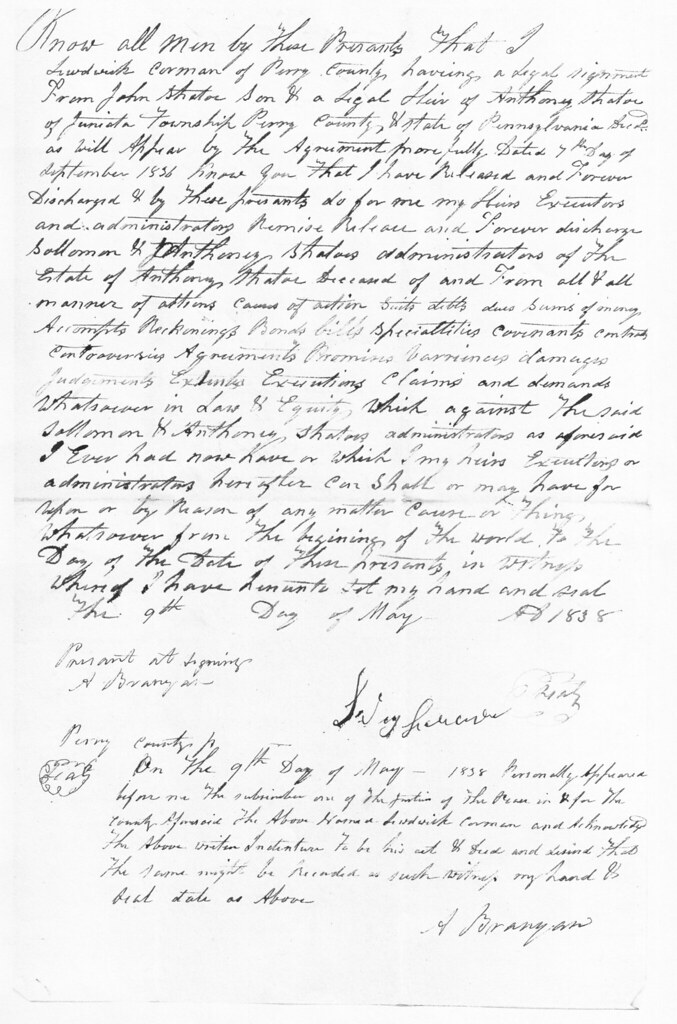 Know all men by these Presants That I
Lewdwick Corman of Perry County haveing a Legal Signment
From John Shatoe Son & a Legal Heir of Anthoney Shatoe
of Juniata Township Perry County & state of Pennsylvania Decd
as will Appear by The Agreement more fully Dated 7th Day of
September 1836 Know you That I have Released and Forever
Discharged & by These presants do for me my Heirs Executors
and administrators Remise Release and Forever discharge
Sollomon & Anthoney Shatoes administrators of The
Estate of Anthoney Shatoe Deceased of and From all & all
manner of actions Caus of action Suits debts dues Sums of money
Accompts Reckonings Bonds bills Specialtities covenants contracts
Controversies Agreements Promises Varrences damages
Judgments Extents Executions Claims and demands
Whatsoever in Law & Equity which against The said
Sollomon & Anthoney Shatoes administrators as aforesaid
I Ever had now have or which I my heirs Executors or
administrators hereafter Can Shall or may have for
upon or by Reason of any matter Cause or Thing
Whatsoever from The begining of The world To The
Day of the Date of These presents in witness
Whereof I have hereunto Set my hand and seal
The 9th Day of May AD 1838
Presant at signing
A Branyan
Seal
Perry County ss
Seal
On The 9th Day of May 1838 Personally Appeared
before me The subscriber one of The Justices of The Peace in & for The
County Aforesaid The Above Named Lewdwick Corman and Acknowledgd
The Above writen Indenture To be his act & Deed and desired That
The same might be Recorded as such witness my hand &
Seal date as Above
A Branyan